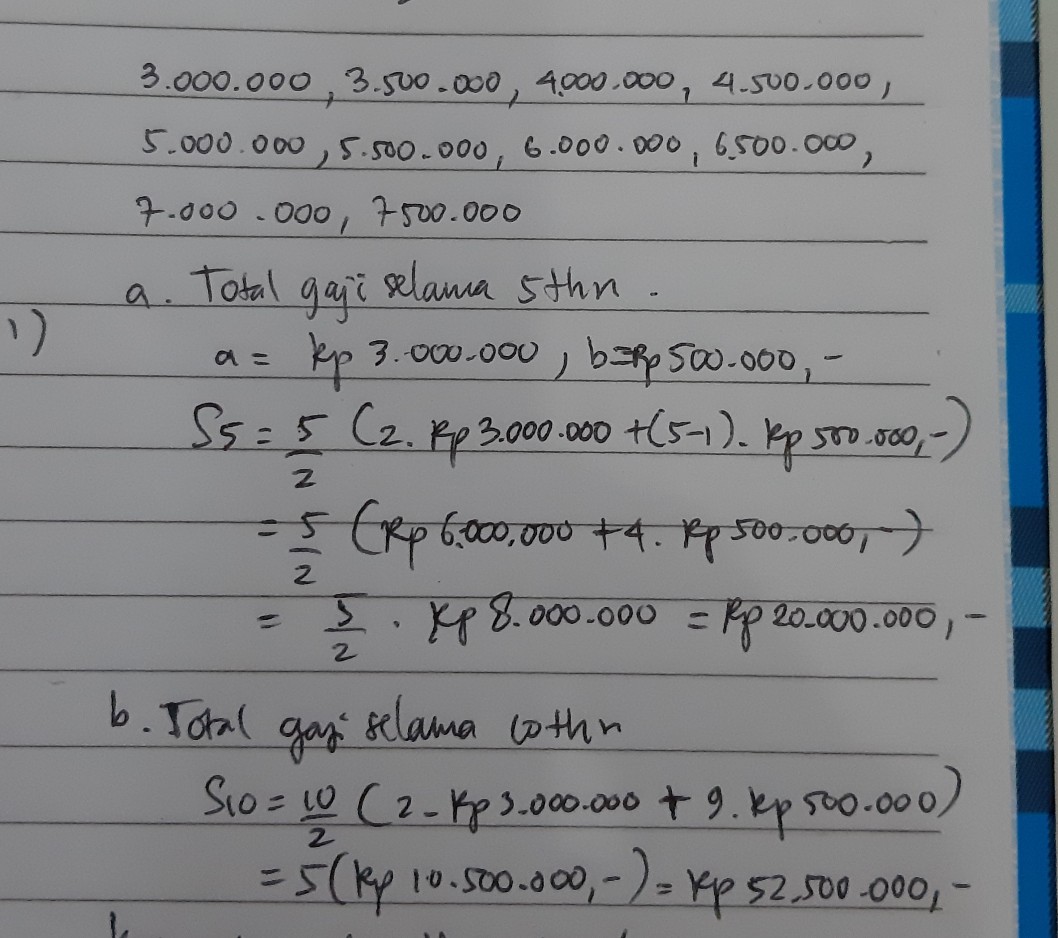 3.000.000, 3.500.000, 4.000.000, 4.500.000,
5.000.000, 5.500.000, 6.000.000, 6.500.000,
7.000.000, 7500.000
a. Total gaji selama 5thn.
1)
a = Rp 3.000.000, b=Rp 500.000,-
S5 = 5/2 (2. Rp 3.000.000 + (5-1). Rp 500.000,-)
= 5/2 (Rp 6.000.000 + 4. Rp 500.000,-)
= 5/2 . Rp 8.000.000 = Rp 20.000.000,-
b. Total gaji selama 10thn
S10 = 10/2 (2. Rp 3.000.000 + 9. Rp 500.000)
= 5(Rp 10.500.000,-) = Rp 52.500.000,-